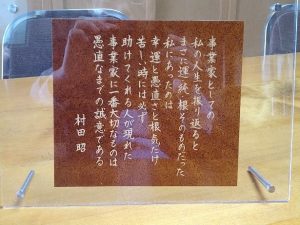 事業家としての
私の人生を振り返ると
まさに運、鈍、根そのものだった
私にあったのは
幸運と愚直さと根気だけ
苦しい時には必ず
助けてくれる人が現れた
事業家に一番大切なものは
愚直なまでの誠意である
村田 昭